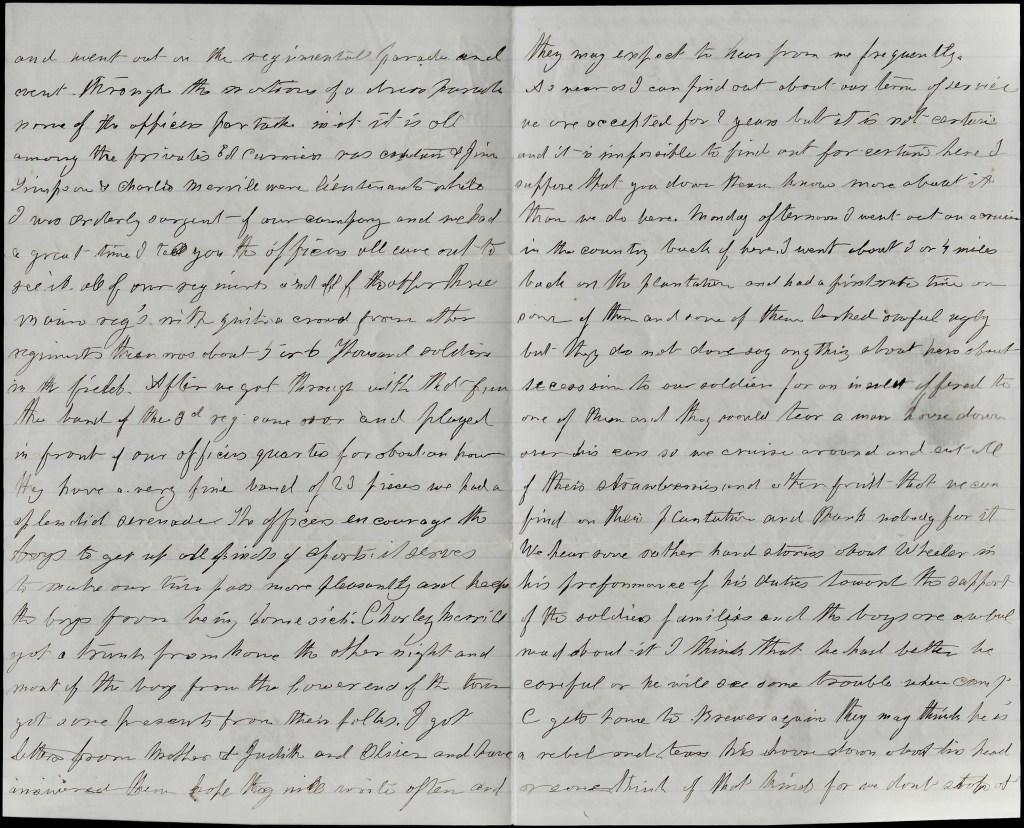 and went out on the regimental parade and
went through the motions of a dress parade
none of the officers partake in it it is all
among the privates Ed Currier was captain & Jim
Simpson & Charlie Merrill were lieutenants while
I was orderly sargent of our company and we had
a great time I tell you the officers all came out to
see it all of our regiments and all of the other three
maine reg's with quite a crowd from other
regiments there was about 5 or 6 Thousand soldiers
in the field. After we got through with that fun
the band of the 3d reg came over and played
in front of our officers quarters for about an hour
they have a very fine band of 23 pieces we had a
splendid serenade. The officers encourage the
boys to get up all kinds of sports. it serves
to make our time pass more pleasantly and keeps
the boys from being homesick. Charley Merrill
got a trunk from home the other night and
most of the boys from the lower end of the town
got some presents from their folks. I got
letters from Mother & Judith and Oliver and have
answered them hope they will write often and
they may expect to hear from me frequently.
As near as I can find out about our term of service
we are accepted for 2 years but it is not certain
and it is impossible to find out for certain here I
suppose that you down there know more about it
than we do here. Monday afternoon I went out on a cruise
in the country back of here I went about 3 or 4 miles
back on the plantation and had a first rate time on
some of them and some of them looked awful ugly
but they do not dare say anything about here about
secession to our soldiers for an insult offered to
one of them and they would tear a man house down
over his ears so we cruise around and eat all
of their strawberries and other fruit that we can
find on their plantation and thank nobody for it
We hear some rather hard stories about Wheeler in
his preformance of his duties toward the support
of the soldiers families and the boys are awful
mad about it I think that he had better be
careful or he will see some trouble when comp'
C gets home to Brewer again they may think he is
a rebel and tear his house down about his head
or some think of that kind for we dont stop at